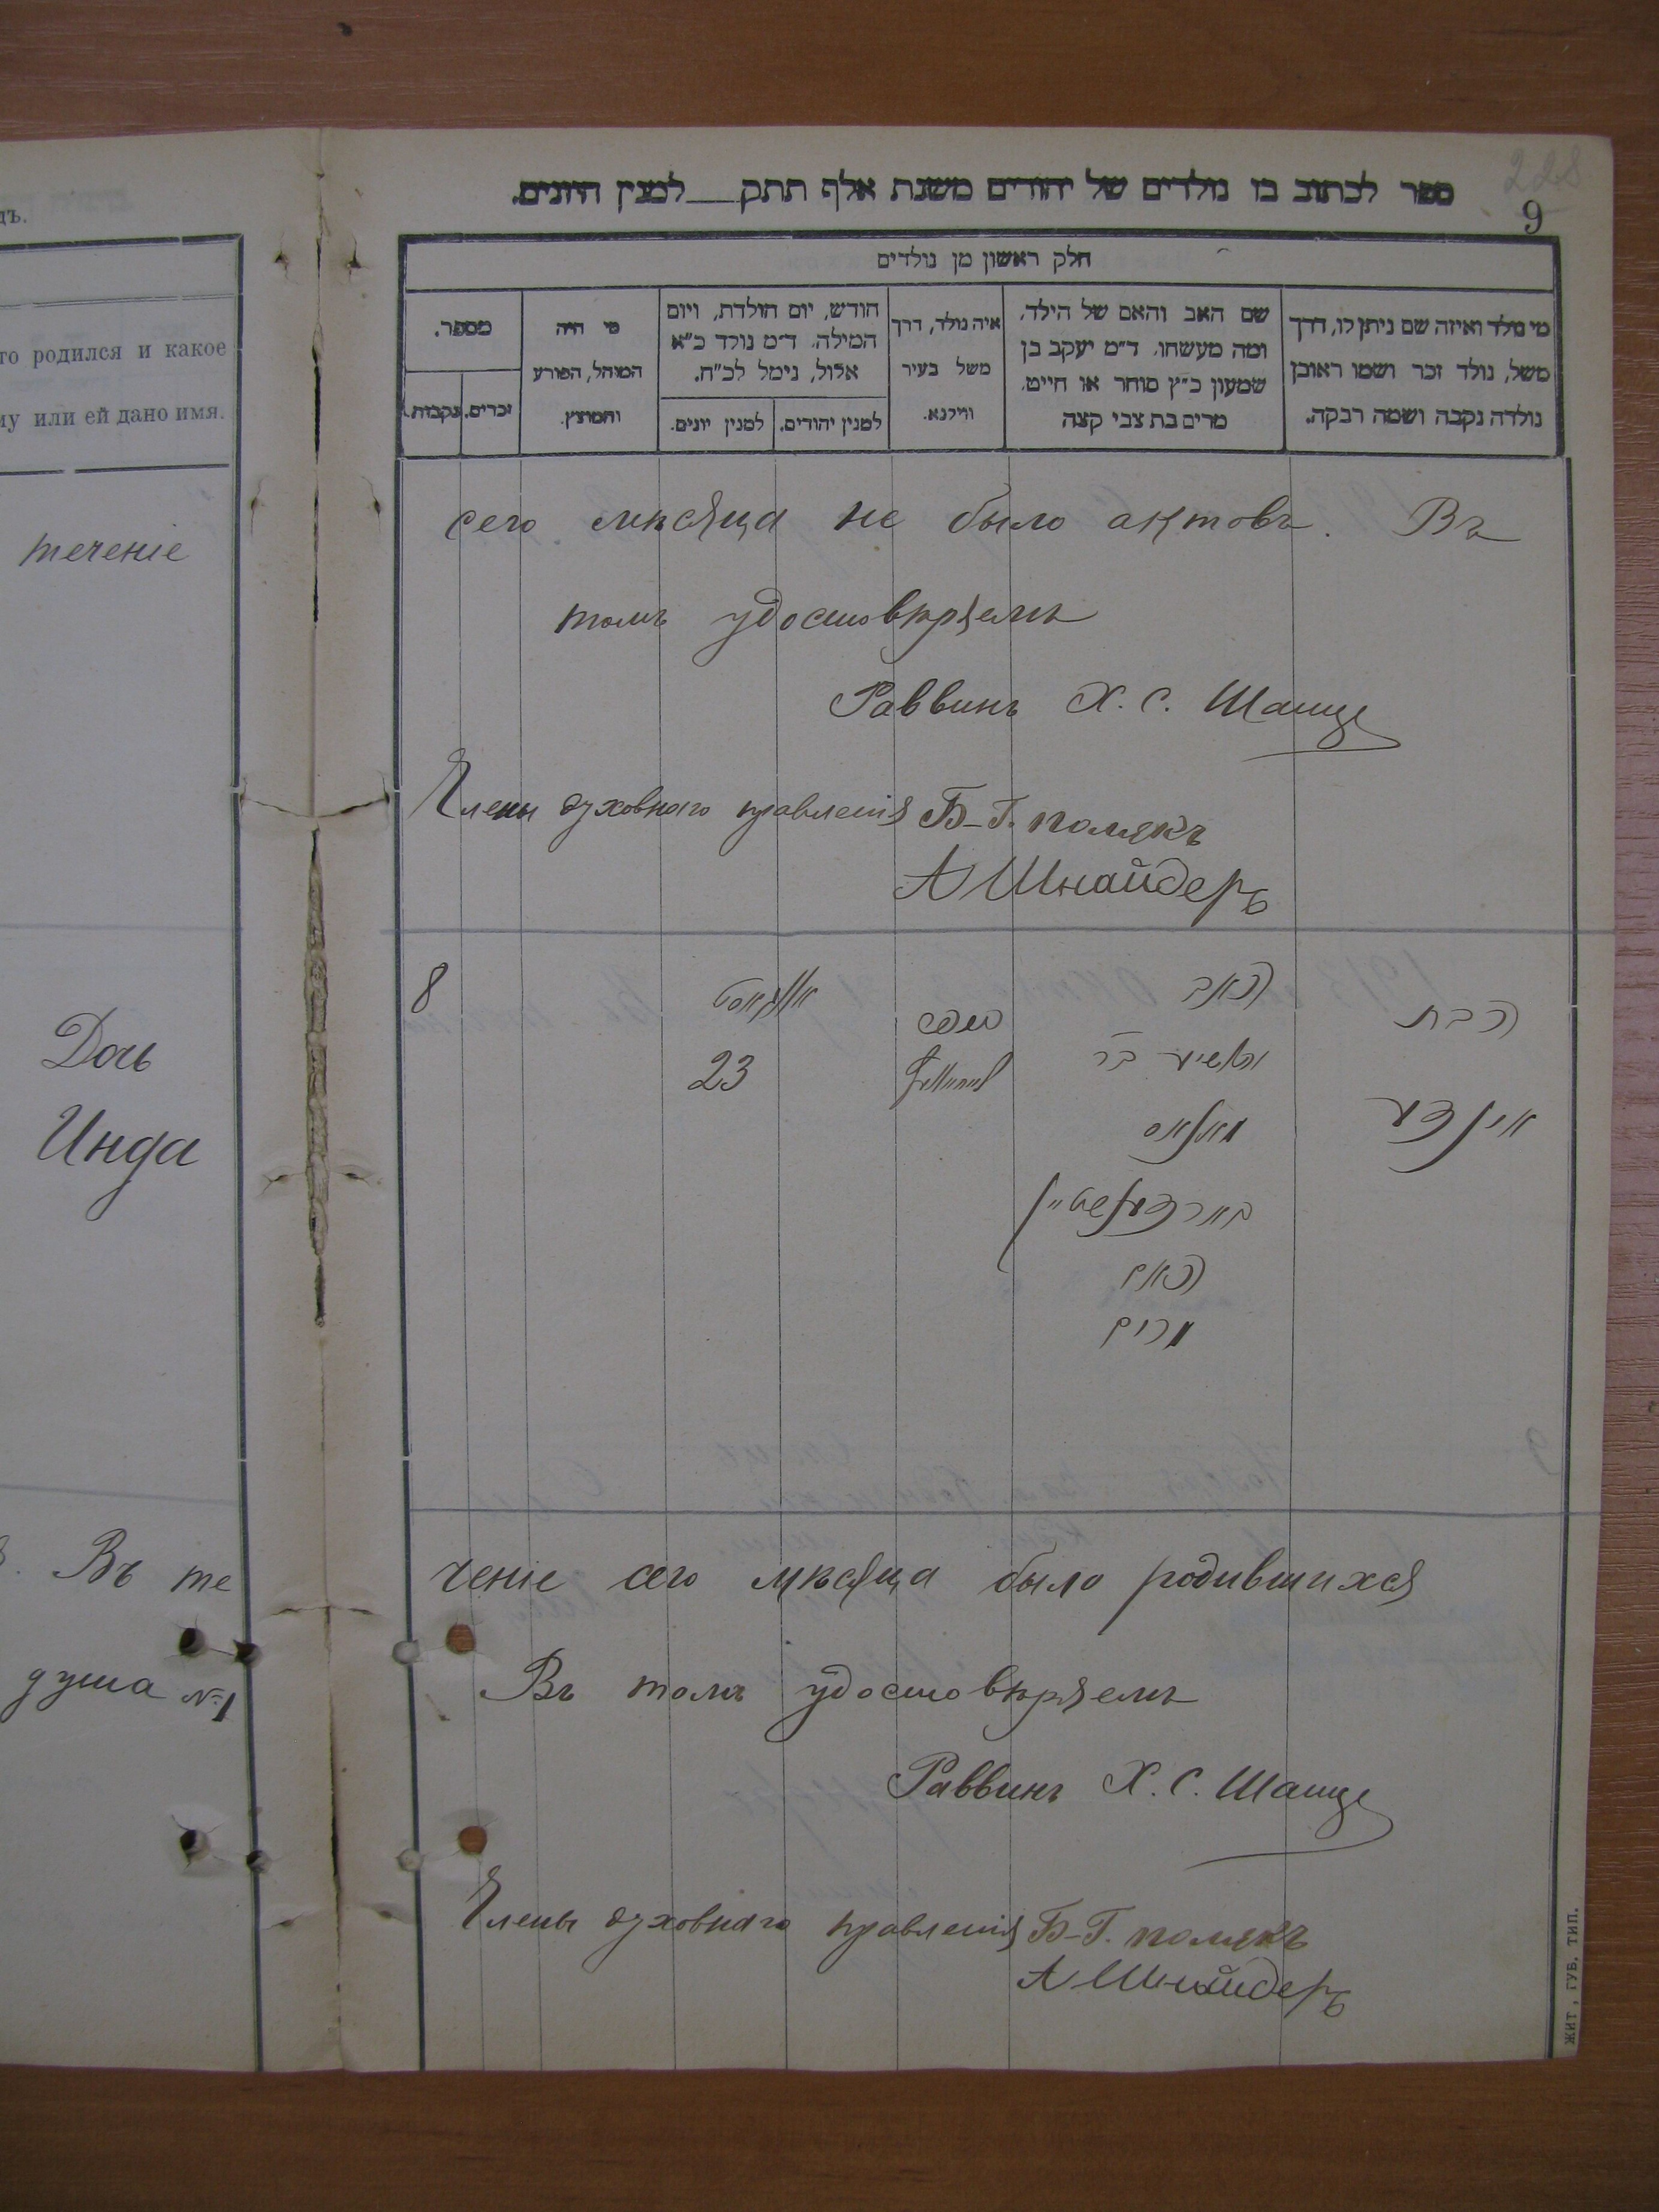 дъ.
то родился и какое
му или ей дано имя.
теченіе
Дочь
Инда
Въ те
душа №1
228
9
ספר לכתוב בו נולדים של יהודים משנת אלף תתק למנין היונים.
חלק ראשון מן נולדים
מי נולד ואיזה שם ניתן לו, דרך
משל, נולד זכר ושמו ראובן
נולדה נקבה ושמה רבקה.
שם האב והאם של הילד,
ומה מעשהו. ד״מ יעקב בן
שמעון כ״ץ סוחר או חייט,
מרים בת צבי קצה
איה נולד, דרך
משל בעיר
ווילנא.
חודש, יום הולדת, ויום
המילה. ד״מ נולד כ״א
אלול, נימל לכ״ח.
למנין יהודים.
למנין יונים.
מי היה
המוהל, הפורע
והמוצץ.
מספר.
זכרים.
נקבות.
сего мѣсяца не было актовъ. Въ
томъ удостовѣряемъ
Раввинъ Х. С. Шапце
Члены духовнаго правленія Б-Г. Полякъ
А Шнайдеръ
8
אויגוסט
23
האב
בארדענשטיין
האם
מרים
הבת
אינדע
ченіе сего мѣсяца было родившихся
Въ томъ удостовѣряемъ
Раввинъ Х. С. Шапце
Члены духовнаго правленія Б-Г. Полякъ
А Шнайдеръ
ЖИТ, ГУБ. ТИП.